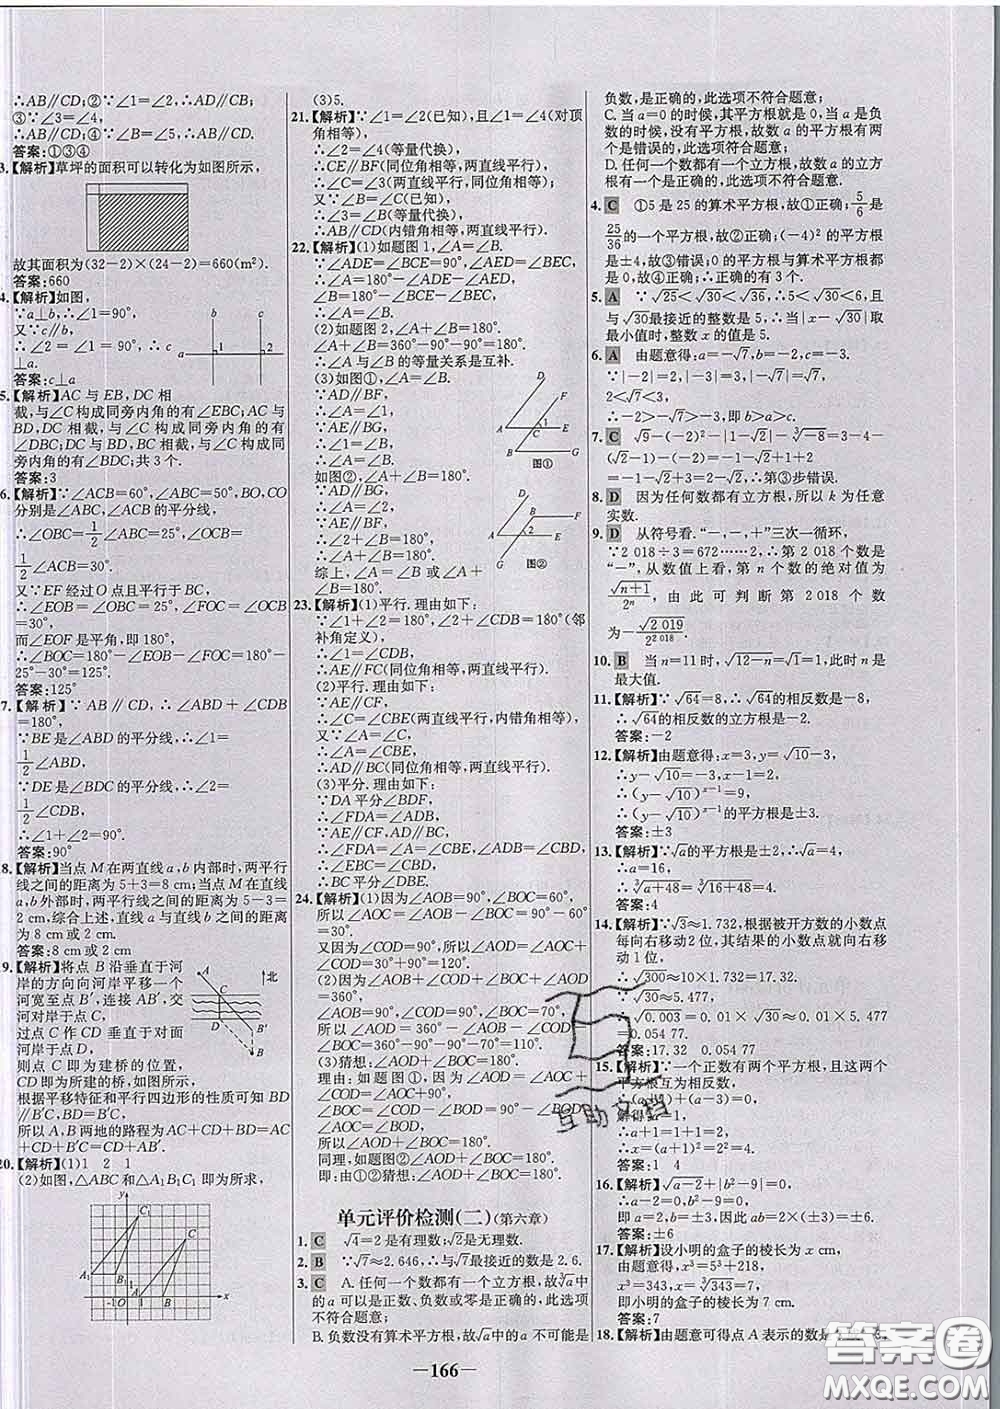 ∴AB∥CD;②∵∠1=∠2,∴AD∥CB;
③∵∠3=∠4,
∴AB∥CD;④∵∠B=∠5,∴AB∥CD.
答案:①③④
3.【解析】草坪的面积可以转化为如图所示,
故其面积为(32-2)×(24-2)=660(m²).
答案:660
4.【解析】如图,
∵a⊥b,∴∠1=90°,
又∵c∥b,
∴∠2=∠1=90°,∴c
⊥a.
答案:c⊥a
b c
a 1 2
5.【解析】AC与EB,DC相
截,与∠C构成同旁内角的有∠EBC;AC与
BD,DC相截,与∠C构成同旁内角的有
∠DBC;DC与BD,BC相截,与∠C构成同
旁内角的有∠BDC;共3个.
答案:3
6.【解析】∵∠ACB=60°,∠ABC=50°,BO,CO
分别是∠ABC,∠ACB的平分线,
∴∠OBC=1/2∠ABC=25°,∠OCB=
1/2∠ACB=30°.
又∵EF经过O点且平行于BC,
∴∠EOB=∠OBC=25°,∠FOC=∠OCB
=30°,
而∠EOF是平角,即180°,
∴∠BOC=180°-∠EOB-∠FOC=180°-
25°-30°=125°.
答案:125°
7.【解析】∵AB∥CD,∴∠ABD+∠CDB
=180°,
∵BE是∠ABD的平分线,∴∠1=
1/2∠ABD,
∵DE是∠BDC的平分线,∴∠2=
1/2∠CDB,
∴∠1+∠2=90°.
答案:90°
18.【解析】当点M在两直线a,b内部时,两平行
线之间的距离为5+3=8 cm;当点M在直线
a,b外部时,两平行线之间的距离为5-3=
2 cm.综合上述,直线a与直线b之间的距离
为8 cm或2 cm.
答案:8 cm或2 cm
19.【解析】将点B沿垂直于河
岸的方向向河岸平移一个
河宽至点B′,连接AB′,
交河对岸于点C,
过点C作CD垂直于对面
河岸于点D,
则点C即为建桥的位置,
CD即为所建的桥,如图.
根据平移特征和平行四边形的性质可知BD
∥B′C,BD=B′C,
所以A,B两地的路程为AC+CD+BD=AC
+CD+B′C=AB′+CD.
A 北
C
D B′
B
20.【解析】(1)1 2 1
(2)如图,△ABC和△A₁B₁C₁即为所求,
y C₁ C
A₁ B₁ 1
-1 O A 1 B x
(3)5.
21.【解析】∵∠1=∠2(已知),且∠1=∠4(对顶
角相等),
∴∠2=∠4(等量代换),
∴CE∥BF(同位角相等,两直线平行),
∴∠C=∠3(两直线平行,同位角相等).
又∵∠B=∠C(已知),
∴∠3=∠B(等量代换),
∴AB∥CD(内错角相等,两直线平行).
22.【解析】(1)如题图1,∠A=∠B.
∵∠ADE=∠BCE=90°,∠AED=∠BEC,
∴∠A=180°-∠ADE-∠AED,
∠B=180°-∠BCE-∠BEC,
∴∠A=∠B.
(2)如题图2,∠A+∠B=180°.
∠A+∠B=360°-90°-90°=180°.
∴∠A与∠B的等量关系是互补.
(3)如图①,∠A=∠B.
∵AD∥BF,
∴∠A=∠1.
∵AE∥BG,
∴∠1=∠B,
∴∠A=∠B.
如图②,∠A+∠B=180°.
∵AD∥BG,
∴∠A=∠2.
∵AE∥BF,
∴∠2+∠B=180°,
∴∠A+∠B=180°.
综上,∠A=∠B或∠A+
∠B=180°.
D F
A C 1 E
B G
图①
D B F
A 2 E
G 图②
23.【解析】(1)平行.理由如下:
∵∠1+∠2=180°,∠2+∠CDB=180°(邻
补角定义),
∴∠1=∠CDB,
∴AE∥FC(同位角相等,两直线平行).
(2)平行.理由如下:
∵AE∥CF,
∴∠C=∠CBE(两直线平行,内错角相等),
又∵∠A=∠C,
∴∠A=∠CBE,
∴AD∥BC(同位角相等,两直线平行).
(3)平分.理由如下:
∵DA平分∠BDF,
∴∠FDA=∠ADB,
∵AE∥CF,AD∥BC,
∴∠FDA=∠A=∠CBE,∠ADB=∠CBD,
∴∠EBC=∠CBD,
∴BC平分∠DBE.
24.【解析】(1)因为∠AOB=90°,∠BOC=60°,
所以∠AOC=∠AOB-∠BOC=90°-60°
=30°.
又因为∠COD=90°,所以∠AOD=∠AOC+
∠COD=30°+90°=120°.
(2)因为∠AOB+∠COD+∠BOC+∠AOD
=360°,
∠AOB=90°,∠COD=90°,∠BOC=70°,
所以∠AOD=360°-∠AOB-∠COD-
∠BOC=360°-90°-90°-70°=110°.
(3)猜想:∠AOD+∠BOC=180°.
理由:如图①,因为∠AOD=∠AOC+
∠COD=∠AOC+90°,
∠BOC=∠AOB-∠AOC=90°-∠AOC,
所以∠AOD+∠BOC=180°.
同理,如图②∠AOD+∠BOC=180°.
即:由①②猜想:∠AOD+∠BOC=180°.
单元评价检测(二)(第六章)
1. C √4=2是有理数;√2是无理数.
2. B ∵√7≈2.646,∴与√7最接近的数是2.6.
3. C A.任何一个数都有一个立方根,故∛a中
的a可以是正数、负数或零是正确的,此选项
不符合题意;
B.负数没有算术平方根,故√a中的a不可能是
负数,是正确的,此选项不符合题意;
C.当a=0的时候,没有负平方根,当a是负
数的时候,没有平方根,故数a的平方根有两
个是错误的,故此选项符合题意;
D.任何一个数都有一个立方根,故数a的立方
根有一个是正确的,此选项不符合题意.
4. C ①5是25的算术平方根,故①正确;5/6是
25/36的一个平方根,故②正确;(-4)²的平方根
是±4,故③错误;0的平方根与算术平方根都
是0,故④正确;∴正确的有3个.
5. A ∵√25<√30<√36,∴5<√30<6,且
与√30最接近的整数是5,∴当|x-√30|取
最小值时,整数x的值是5.
6. A 由题意得:a=-√7,b=-2,c=-3.
∵|-2|=2,|-√7|=√7,|-3|=3,
2<√7<3,
∴-2>-√7>-3,即b>a>c.
7. C √9-(-2)²-|1-√2|-∛-8=3-4-
(√2-1)-(-2)=-1-√2+1+2
=-1-√2+3=-√2+2,第③步错误.
8. D 因为任何数都有立方根,所以k为任意
实数.
9. D 从符号看.“-,-,+”三次一循环,
∵2 018÷3=672……2,∴第2 018个数是
“-”,从数值上看,第n个数的绝对值为
√n+1/2ⁿ,由此可判断第2 018个数
为-√2 019/2² ⁰¹⁸.
10. B 当n=11时,√12-n=√1=1,此时n是
最大值.
11.【解析】∵√64=8,∴√64的相反数是-8,
∴√64的相反数的立方根是-2.
答案:-2
12.【解析】由题意得:x=3,y=√10-3,
∴y-√10=-3,x-1=2,
∴(y-√10)ˣ⁻¹=9,
∴(y-√10)ˣ⁻¹的平方根是±3.
答案:±3
13.【解析】∵√a的平方根是±2,∴√a=4,
∴a=16,
∴∛a+48=∛16+48=4.
答案:4
14.【解析】∵√3≈1.732,根据被开方数的小数点
每向右移动2位,其结果的小数点就向右移动1位,
∴√300≈10×1.732=17.32.
∵√30≈5.477,
∴√0.003=0.01×√30≈0.01×5.477
=0.054 77.
答案:17.32 0.054 77
15.【解析】∵一个正数有两个平方根,且这两个
平方根互为相反数,
∴(a+1)+(a-1)=0,
解得a=1.
∴a+1=1+1=2,
∴x=4.
答案:1 4
16.【解析】∵√a-2+|b²-9|=0,
∴a-2=0,b²-9=0,
即a=2,b=±3,因此ab=2×(±3)=±6.
答案:±6
17.【解析】设小明的盒子的棱长为x cm,
由题意得,x³=5³+218,
x³=343,x=∛343=7,
即小明的盒子的棱长为7 cm.
答案:7
18.【解析】由题意可得点A表示的数是
—166—
互助文档
答案圈
MXQE.COM